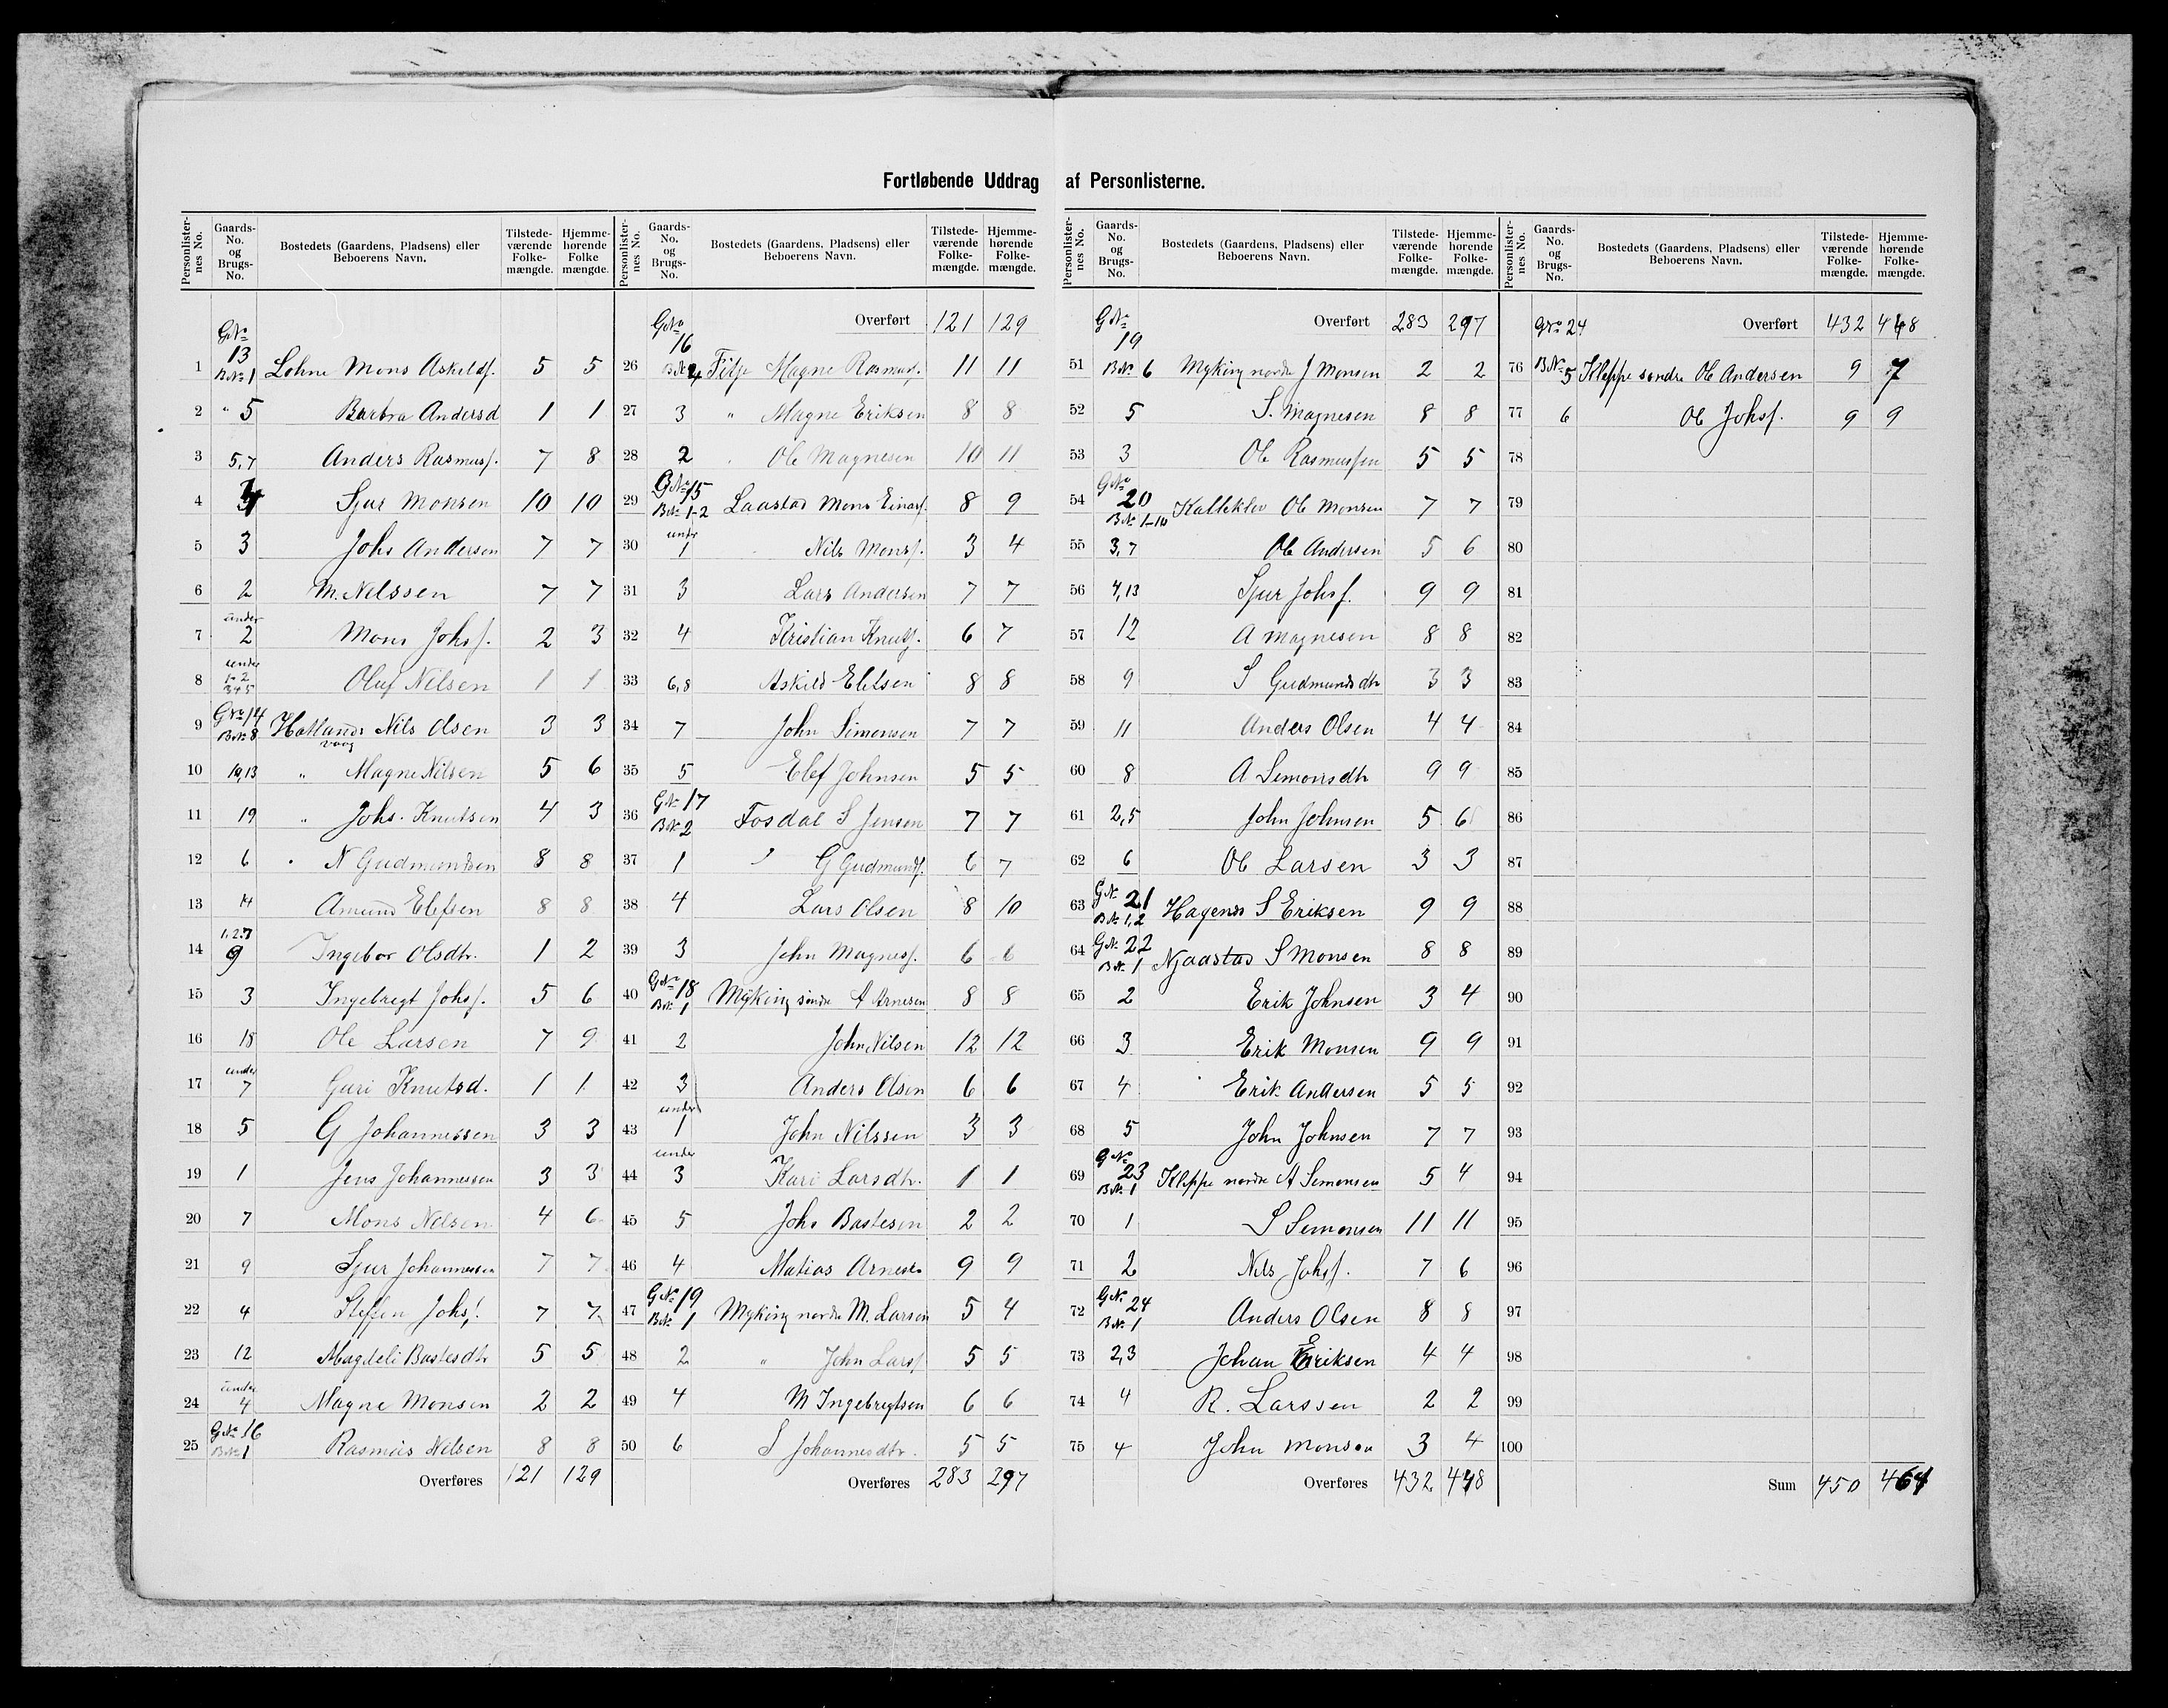 Fortløbende Uddrag af Personlisterne.
Personlisternes No. Gaards-No. og Brugs-No. Bostedets (Gaardens, Pladsens) eller Beboerens Navn. Tilstedeværende Folkemængde. Hjemmehørende Folke mængde.
GNo 13
1 BNo 1 Lohne Mons Askelds. 5 5
2 " 5 Barbra Andersd 1 1
3 5,7 Anders Rasmuss. 7 8
4 4 Sjur Monsen 10 10
5 3 Johs Andersen 7 7
6 2 M. Nelssen 7 7
7 under 2 Mons Johs. 2 3
8 under 1-2 3 4 5 Oluf Nilsen 1 1
GNo 14
9 BNo 8 Hatlandsvaag Nils Olsen 3 3
10 10,13 " Magne Nilsen 5 6
11 19 " Johs. Knutsen 4 3
12 6 " N Gudmundsen 8 8
13 14 Amund Elefsen 8 8
14 9 Ingebor Olsdtr. 1 2
15 3 Ingebregt Johs. 5 6
16 18 Ole Larsen 7 9
17 under 7 Guri Knutsd. 1 1
18 5 G Johannessen 3 3
19 1 Jens Johannessen 3 3
20 7 Mons Nelsen 4 6
21 9 Sjur Johannessen 7 7
22 4 Steffen Johs. 7 7
23 12 Magdeli Bastesdtr 5 5
24 under 4 Magne Monsen 2 2
GNo 16
25 BNo 1 Rasmus Nilsen 8 8
Overføres 121 129
Personlisternes No. Gaards-No. og Brugs-No. Bostedets (Gaardens, Pladsens) eller Beboerens Navn. Tilstedeværende Folkemængde. Hjemmehørende Folkemængde.
GNo 16 Overført 121 129
26 BNo 4 Fitje Magne Rasmuss. 11 11
27 3 " Magne Eriksen 8 8
28 2 Ole Magnesen 10 11
GNo 15
29 BNo 1-2 Laastad Mons Einars. 8 9
30 under 1 Nils Monss. 3 4
31 3 Lars Andersen 7 7
32 4 Kristian Knuts. 6 7
33 6,8 Askild Elefsen 8 8
34 7 John Simensen 7 7
35 5 Elef Johnsen 5 5
GNo 17
36 BNo 2 Fosdal S Jensen 7 7
37 1 " G Gudmunds. 6 7
38 4 Lars Olsen 8 10
39 3 John Magness. 6 6
GNo 18
40 BNo 1 Myking søndre A Arnesen 8 8
41 2 John Nilsen 12 12
42 3 Anders Olsen 6 6
43 under 1 John Nilssen 3 3
44 under 3 Kari Larsdtr. 1 1
45 5 Johs Bastesen 2 2
46 4 Matias Arnesen 9 9
GNo 19
47 BNo 1 Myking nordre M. Larsen 5 4
48 2 " John Larss 5 5
49 4 M Ingebregtsen 6 6
50 6 S Johannesdtr. 5 5
Overføres 283 297
Personlisternes No. Gaards-No. og Brugs-No. Bostedets (Gaardens, Pladsens) eller Beboerens Navn. Tilstedeværende Folkemængde. Hjemmehørende Folkemængde.
GNo 19 Overført 283 297
51 BNo 6 Myking nordre J Monsen 2 2
52 5 S. Magnesen 8 8
53 3 Ole Rasmussen 5 5
GNo 20
54 BNo 1-10 Kalleklev Ole Monsen 7 7
55 3,7 Ole Andersen 5 6
56 4,13 Sjur Johs. 9 9
57 12 A Magnesen 8 8
58 9 S Gudmundsdtr 3 3
59 11 Anders Olsen 4 4
60 8 A Semonsdtr 9 9
61 2,5 John Johnsen 5 6
62 6 Ole Larsen 3 3
GNo 21
63 BNo 1,2 Hagenes S Eriksen 9 9
GNo 22
64 BNo 1 Njaastad S Monsen 8 8
65 2 Erik Johnsen 3 4
66 3 Erik Monsen 9 9
67 4 Erik Andersen 5 5
68 5 John Johnsen 7 7
GNo 23
69 BNo 1 Kleppe nordre A Semonsen 5 4
70 1 S Semonsen 11 11
71 2 Nils Johs. 7 6
GNo 24
72 BNo 1 Anders Olsen 8 8
73 2,3 Johan Eriksen 4 4
74 4 R. Larssen 2 2
75 4 John Monsen 3 4
Overføres 432 448
Personlisternes No. Gaards-No. og Brugs-No. Bostedets (Gaardens, Pladsens) eller Beboerens Navn. Tilstedeværende Folkemængde. Hjemmehørende Folkemængde.
GNo 24 Overført 432 448
76 BNo 5 Kleppe søndre Ole Andersen 9 7
77 6 Ole Johs. 9 9
78
79
80
81
82
83
84
85
86
87
88
89
90
91
92
93
94
95
96
97
98
99
100
Sum 450 464